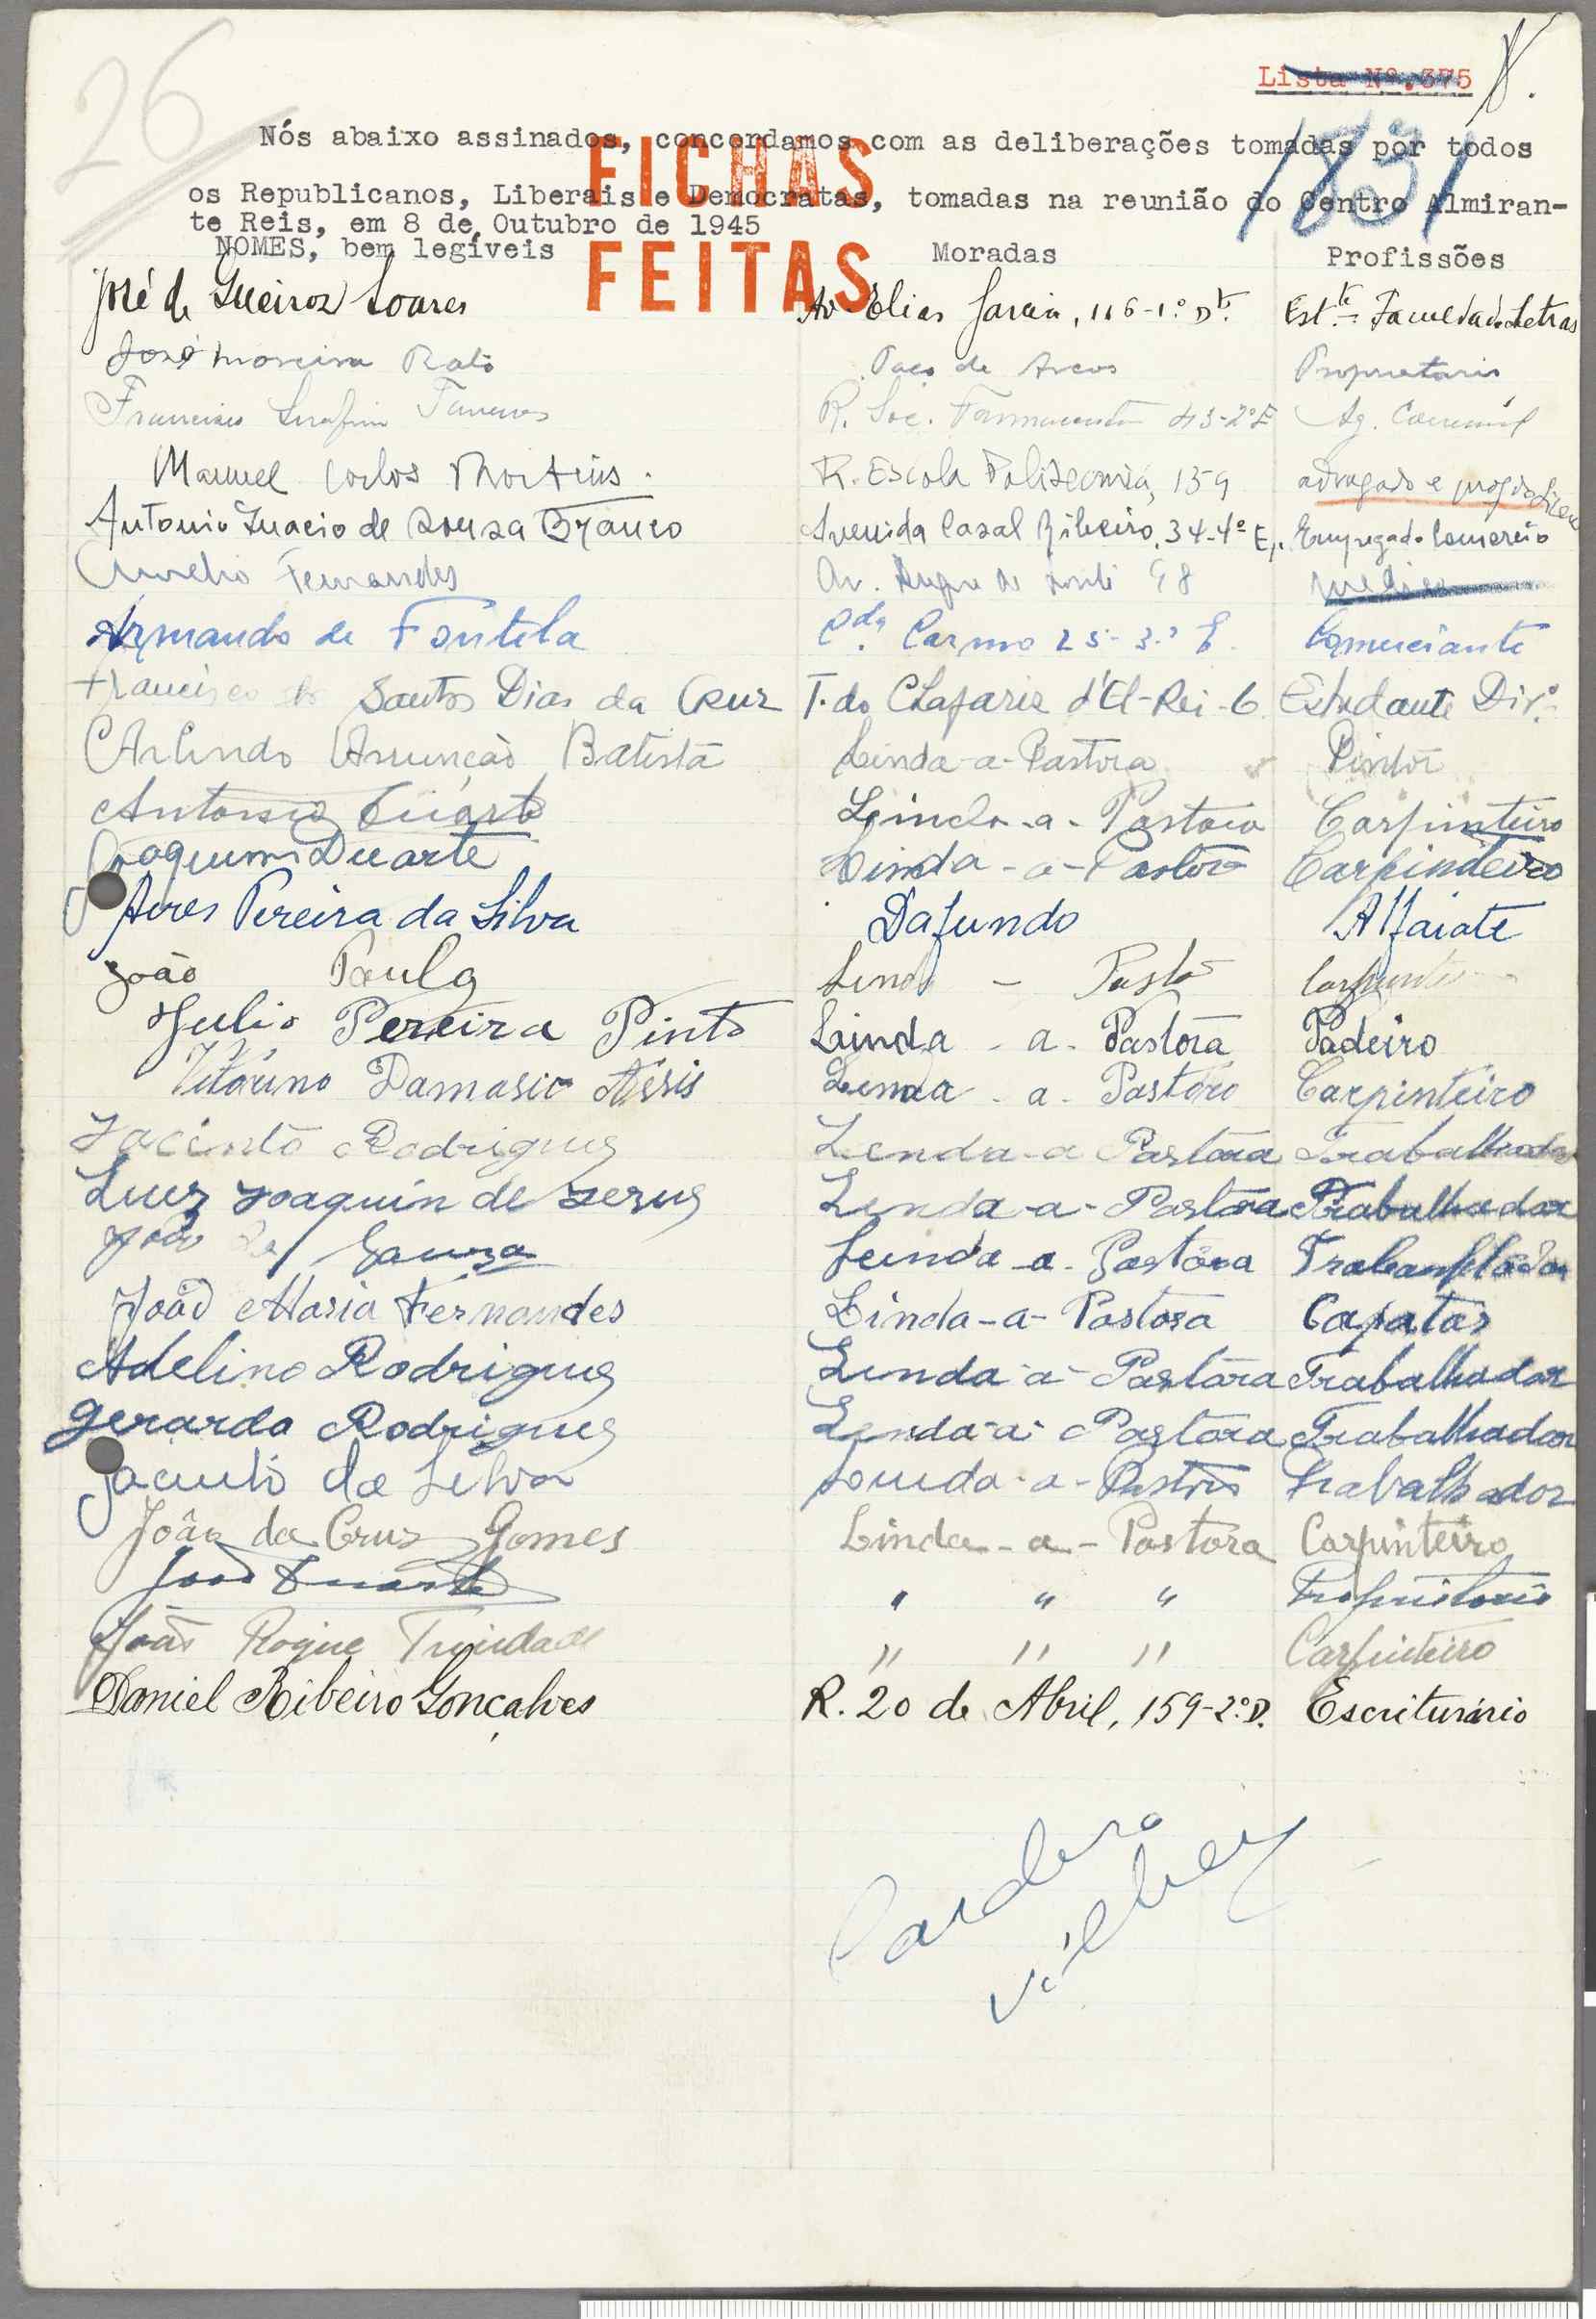 26
Lista Nº.375
1831
Nós abaixo assinados, concordamos com as deliberações tomadas por todos
os Republicanos, Liberais e Democratas, tomadas na reunião do Centro Almiran-
te Reis, em 8 de Outubro de 1945
FICHAS
FEITAS
NOMES, bem legíveis Moradas Profissões
José de Queiroz Soares Av. Elias Garcia, 116-1º Dto. Est.te Faculdade Letras
José Moreira Rato Paço de Arcos Proprietario
Francisco Serafim R. Soc. Farmaceutica 43-2º E Ag. Comercial
Manuel Carlos Martins. R. Escola Politecnica, 159 advogado e prof do Liceu
Antonio Inacio de Sousa Branco Avenida Casal Ribeiro, 34-4º E, Empregado Comercio
Aurelio Fernandes Av. 98
Armando de Fontela Cda. Carmo 25-3.º E. Comerciante
Francisco dos Santos Dias da Cruz T. do Chafariz d'El-Rei-6 Estudante Dir.º
Arlindo Assunção Batista Linda-a-Pastora Pintor
Antonio Duarte Linda-a-Pastora Carpinteiro
Joaquim Duarte Linda-a-Pastora Carpinteiro
Aires Pereira da Silva Dafundo Alfaiate
João Paula Linda - Pasto Carpinteiro
Julio Pereira Pinto Linda - a - Pastora Padeiro
Vitorino Damasio Assis Linda - a - Pastora Carpinteiro
Jacinto Rodrigues Lenda-a Pastora Trabalhador
Luez Joaquin de Jezus Lenda-a-Pastora Trabalhador
João de Sousa Leinda-a-Pastora
João Maria Fernandes Linda-a-Pastora Capatas
Adelino Rodrigues Lenda-a-Pastora Trabalhador
Gerardo Rodrigues Lenda-a-Pastora Trabalhador
Jacinto da Silva Linda-a-Pastora Trabalhador
João da Cruz Gomes Linda-a-Pastora Carpinteiro
João Duarte " " " Proprietario
João Roque Trindade " " " Carpinteiro
Daniel Ribeiro Gonçalves R. 20 de Abril, 159-2º.D. Escriturário